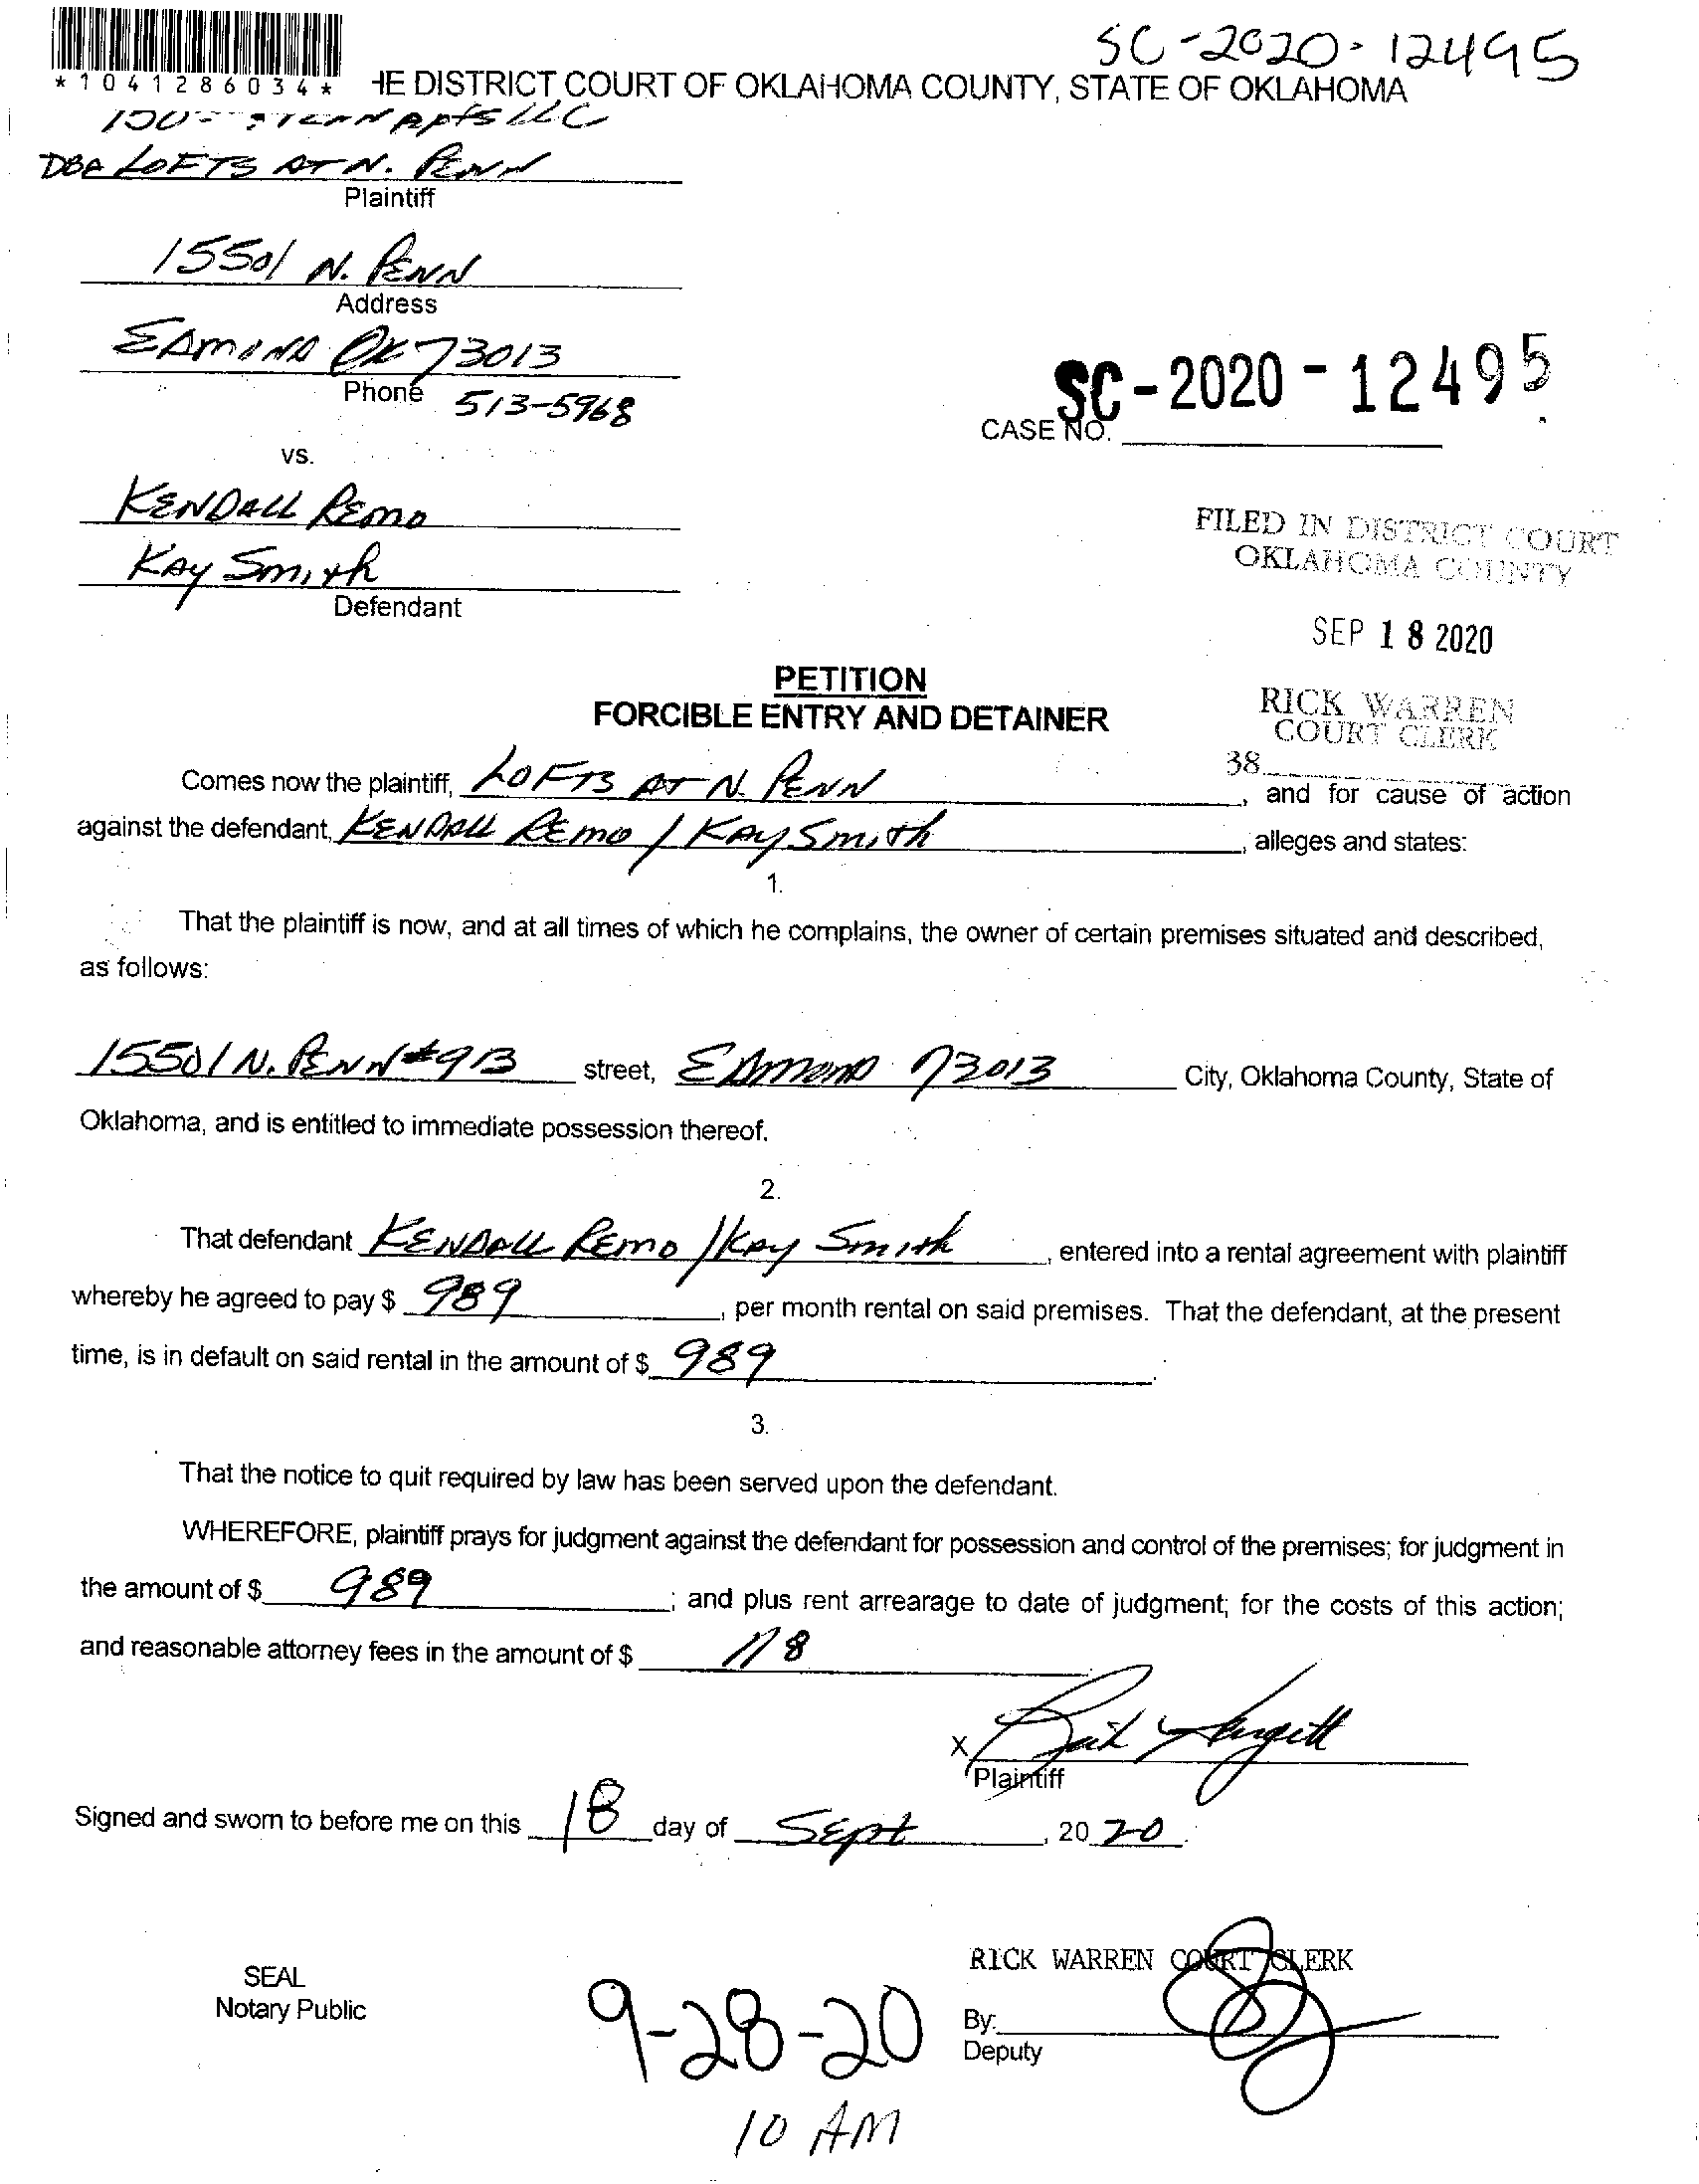 SC-2020-12495
*1041286034* HE DISTRICT COURT OF OKLAHOMA COUNTY, STATE OF OKLAHOMA
Apts LLC
DBA LOFTS AT N. PENN
Plaintiff
15501 N. PENN
Address
EDMOND OK 73013
Phone 513-5968
SC-2020-12495
CASE NO.
vs.
KENDALL REMO
KAY SMITH
Defendant
FILED IN DISTRICT COURT
OKLAHOMA COUNTY
SEP 18 2020
RICK WARREN
COURT CLERK
38
PETITION
FORCIBLE ENTRY AND DETAINER
Comes now the plaintiff, LOFTS AT N. PENN, and for cause of action
against the defendant, KENDALL REMO / KAY SMITH, alleges and states:
1.
That the plaintiff is now, and at all times of which he complains, the owner of certain premises situated and described,
as follows:
15501 N. PENN #913 street, EDMOND 73013 City, Oklahoma County, State of
Oklahoma, and is entitled to immediate possession thereof.
2.
That defendant KENDALL REMO / KAY SMITH, entered into a rental agreement with plaintiff
whereby he agreed to pay $ 989, per month rental on said premises. That the defendant, at the present
time, is in default on said rental in the amount of $ 989.
3.
That the notice to quit required by law has been served upon the defendant.
WHEREFORE, plaintiff prays for judgment against the defendant for possession and control of the premises; for judgment in
the amount of $ 989; and plus rent arrearage to date of judgment; for the costs of this action;
and reasonable attorney fees in the amount of $ 118
X
Plaintiff
Signed and sworn to before me on this 18 day of Sept, 20 20.
SEAL
Notary Public
RICK WARREN COURT CLERK
By:
Deputy
9-28-20
10 AM